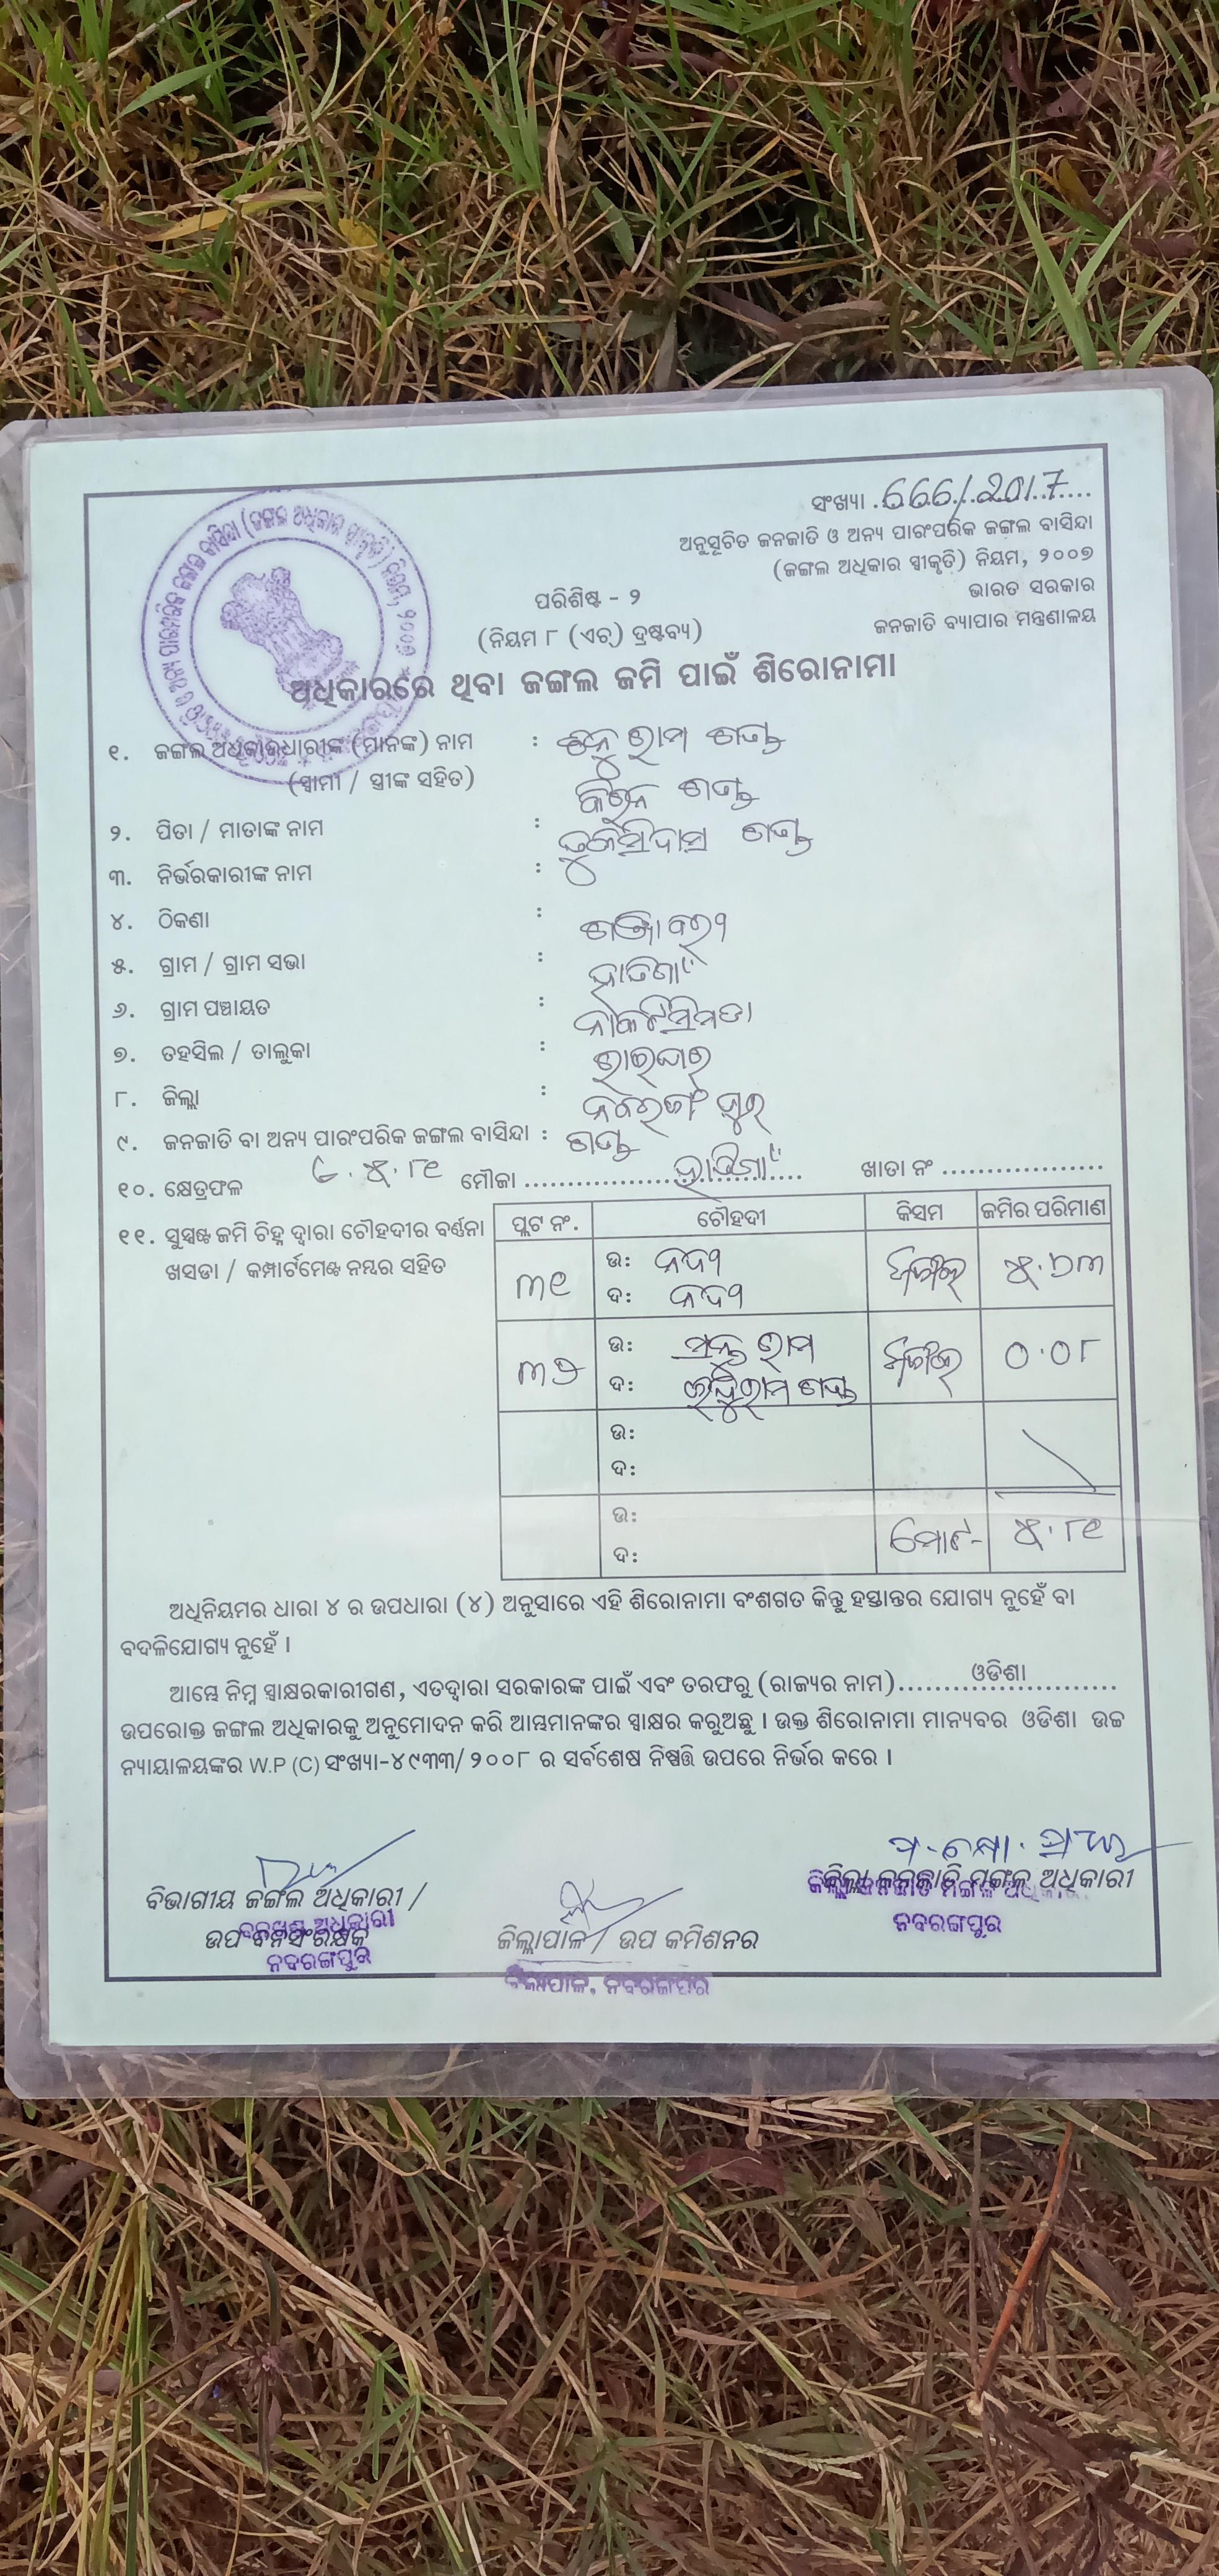 ସଂଖ୍ୟା 666/2017
ଅନୁସୂଚିତ ଜନଜାତି ଓ ଅନ୍ୟ ପାରଂପରିକ ଜଙ୍ଗଲ ବାସିନ୍ଦା
(ଜଙ୍ଗଲ ଅଧିକାର ସ୍ୱୀକୃତି) ନିୟମ, ୨୦୦୭
ଭାରତ ସରକାର
ଜନଜାତି ବ୍ୟାପାର ମନ୍ତ୍ରଣାଳୟ
ପରିଶିଷ୍ଟ - ୨
(ନିୟମ ୮ (ଏଚ୍) ଦ୍ରଷ୍ଟବ୍ୟ)
ଅଧିକାରରେ ଥିବା ଜଙ୍ଗଲ ଜମି ପାଇଁ ଶିରୋନାମା
୧. ଜଙ୍ଗଲ ଅଧିକାରଧାରୀଙ୍କ (ମାନଙ୍କ) ନାମ : ରାମ ଗଣ୍ଡ
(ସ୍ୱାମୀ / ସ୍ତ୍ରୀଙ୍କ ସହିତ) ଗଣ୍ଡ
୨. ପିତା / ମାତାଙ୍କ ନାମ : ଗଣ୍ଡ
୩. ନିର୍ଭରକାରୀଙ୍କ ନାମ :
୪. ଠିକଣା :
୫. ଗ୍ରାମ / ଗ୍ରାମ ସଭା : ହାତିଗାଁ
୬. ଗ୍ରାମ ପଞ୍ଚାୟତ :
୭. ତହସିଲ / ତାଲୁକା : ରାଇଘର
୮. ଜିଲ୍ଲା : ନବରଙ୍ଗପୁର
୯. ଜନଜାତି ବା ଅନ୍ୟ ପାରଂପରିକ ଜଙ୍ଗଲ ବାସିନ୍ଦା : ଗଣ୍ଡ
୧୦. କ୍ଷେତ୍ରଫଳ ୫.୮୧ ମୌଜା ହାତିଗାଁ ଖାତା ନଂ
୧୧. ସୁସ୍ପଷ୍ଟ ଜମି ଚିହ୍ନ ଦ୍ୱାରା ଚୌହଦୀର ବର୍ଣ୍ଣନା
ଖସଡା / କମ୍ପାର୍ଟମେଣ୍ଟ ନମ୍ବର ସହିତ
ପ୍ଲଟ ନଂ. ଚୌହଦୀ କିସମ ଜମିର ପରିମାଣ
୩୧ ଉ: ନଦୀ ୫.୭୩
ଦ: ନଦୀ
୩୨ ଉ: ରାମ ୦.୦୮
ଦ: ଗଣ୍ଡ
ଉ:
ଦ:
ଉ: ମୋଟ- ୫.୮୧
ଦ:
ଅଧିନିୟମର ଧାରା ୪ ର ଉପଧାରା (୪) ଅନୁସାରେ ଏହି ଶିରୋନାମା ବଂଶଗତ କିନ୍ତୁ ହସ୍ତାନ୍ତର ଯୋଗ୍ୟ ନୁହେଁ ବା
ବଦଳିଯୋଗ୍ୟ ନୁହେଁ ।
ଆମ୍ଭେ ନିମ୍ନ ସ୍ୱାକ୍ଷରକାରୀଗଣ, ଏତଦ୍ୱାରା ସରକାରଙ୍କ ପାଇଁ ଏବଂ ତରଫରୁ (ରାଜ୍ୟର ନାମ) ଓଡିଶା
ଉପରୋକ୍ତ ଜଙ୍ଗଲ ଅଧିକାରକୁ ଅନୁମୋଦନ କରି ଆମ୍ଭମାନଙ୍କର ସ୍ୱାକ୍ଷର କରୁଅଛୁ । ଉକ୍ତ ଶିରୋନାମା ମାନ୍ୟବର ଓଡିଶା ଉଚ୍ଚ
ନ୍ୟାୟାଳୟଙ୍କର W.P (C) ସଂଖ୍ୟା-୪୯୩୩/୨୦୦୮ ର ସର୍ବଶେଷ ନିଷ୍ପତ୍ତି ଉପରେ ନିର୍ଭର କରେ ।
ବିଭାଗୀୟ ଜଙ୍ଗଲ ଅଧିକାରୀ /
ଉପ ବନସଂରକ୍ଷକ
ବନଖଣ୍ଡ ଅଧିକାରୀ
ନବରଙ୍ଗପୁର
ଜିଲ୍ଲାପାଳ / ଉପ କମିଶନର
ଜିଲ୍ଲାପାଳ, ନବରଙ୍ଗପୁର
ଜିଲ୍ଲା ଜନଜାତି ମଙ୍ଗଳ ଅଧିକାରୀ
ଜିଲ୍ଲା ଜନଜାତି ମଙ୍ଗଳ ଅଧିକାରୀ
ନବରଙ୍ଗପୁର